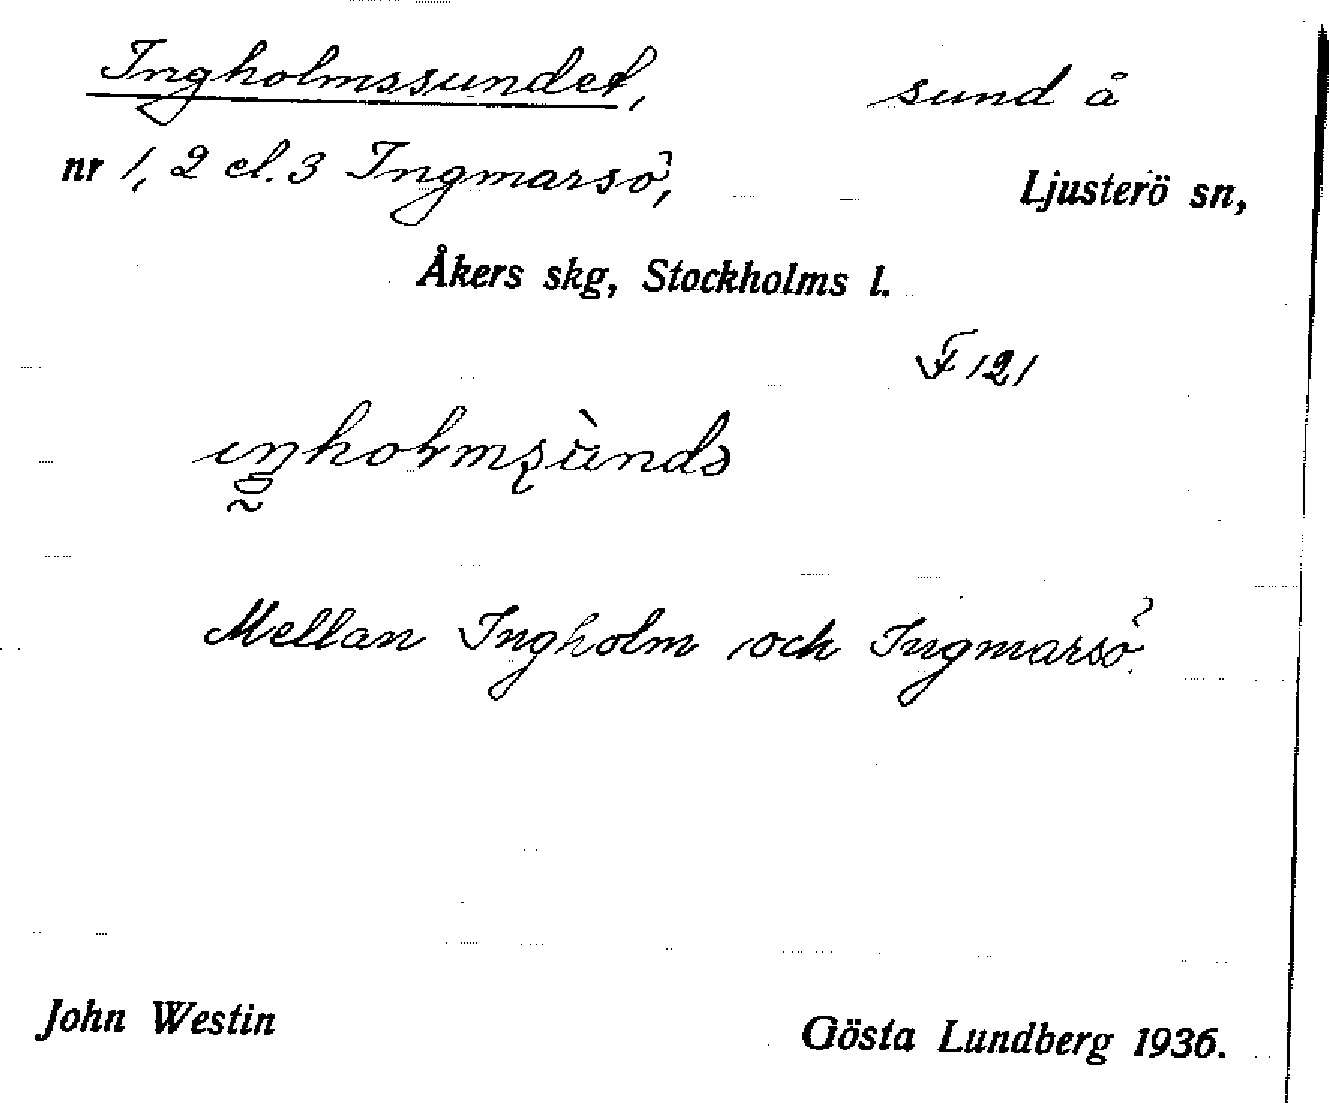 Ingholmssundet, sund å
nr 1, 2 el. 3 Ingmarsö, Ljusterö sn,
Åkers skg, Stockholms l.
F 121
Mellan Ingholm och Ingmarsö
John Westin Gösta Lundberg 1936.